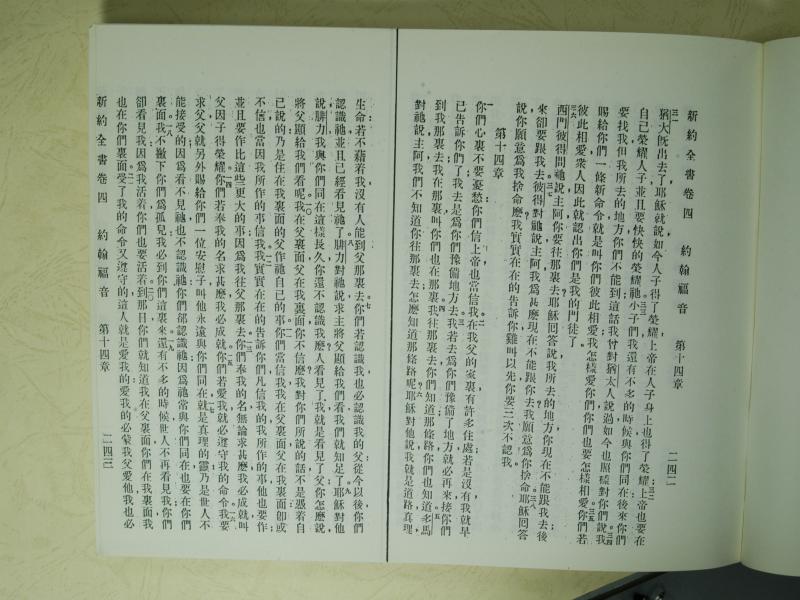 新約全書卷四 約翰福音 第十四章 二四二
三一猶大旣出去了耶穌就說如今人子得了榮耀上帝在人子身上也得了榮耀三二上帝也要在
自己榮耀人子並且要快快的榮耀祂三三小子們我還有不多的時候與你們同在後來你們
要找我但我所去的地方你們不能到這話我曾對猶太人說過如今也照樣對你們說三四我
賜給你們一條新命令就是叫你們彼此相愛我怎樣愛你們你們也要怎樣相愛三五你們若
彼此相愛衆人因此就認出你們是我的門徒了
三六西門彼得問祂說主阿你要往那裏去耶穌回答說我所去的地方你現在不能跟我去後
來卻要跟我去三七彼得對祂說主阿我爲甚麽現在不能跟你去我願意爲你捨命三八耶穌回答
說你願意爲我捨命麽我實實在在的告訴你雞叫以先你要三次不認我
第十四章
一你們心裏不要憂愁你們信上帝也當信我二在我父的家裏有許多住處若是沒有我就早
已告訴你們了我去是爲你們豫備地方三去我若去爲你們豫備了地方就必再來接你們
到我那裏去我在那裏叫你們也在那裏四我往那裏去你們知道那條路你們也知道五多馬
對祂說主阿我們不知道你往那裏去怎麽知道那條路呢六耶穌對他說我就是道路眞理
生命若不藉着我沒有人能到父那裏去七你們若認識我也必認識我的父從今以後你們
認識祂並且已經看見祂了八腓力對祂說求主將父顯給我們看我們就知足了九耶穌對他
說腓力我與你們同在這樣長久你還不認識我麽人看見了我就是看見了父你怎麽說
將父顯給我們看呢十我在父裏面父在我裏面你不信麽我對你們所說的話不是憑着自
己說的乃是住在我裏面的父作祂自己的事一一你們當信我我在父裏面父在我裏面卽或
不信也當因我所作的事信我一二我實實在在的告訴你們凡信我的我所作的事他也要作
並且要作比這些更大的事因爲我往父那裏去一三你們奉我的名無論求甚麽我必成就叫
父因子得榮耀一四你們若奉我的名求甚麽我必成就一五你們若愛我就必遵守我的命令一六我要
求父父就另外賜給你們一位安慰子叫他永遠與你們同在一七就是眞理的靈乃是世人不
能接受的因爲看不見祂也不認識祂你們卻認識祂因爲祂常與你們同在也要在你們
裏面一八我不撇下你們爲孤兒我必到你們這裏來一九還有不多的時候世人不再看見我你們
卻看見我因爲我活着你們也要活着二〇到那日你們就知道我在父裏面你們在我裏面我
也在你們裏面二一受了我的命令又遵守的這人就是愛我的愛我的必蒙我父愛他我也必
新約全書卷四 約翰福音 第十四章 二四三